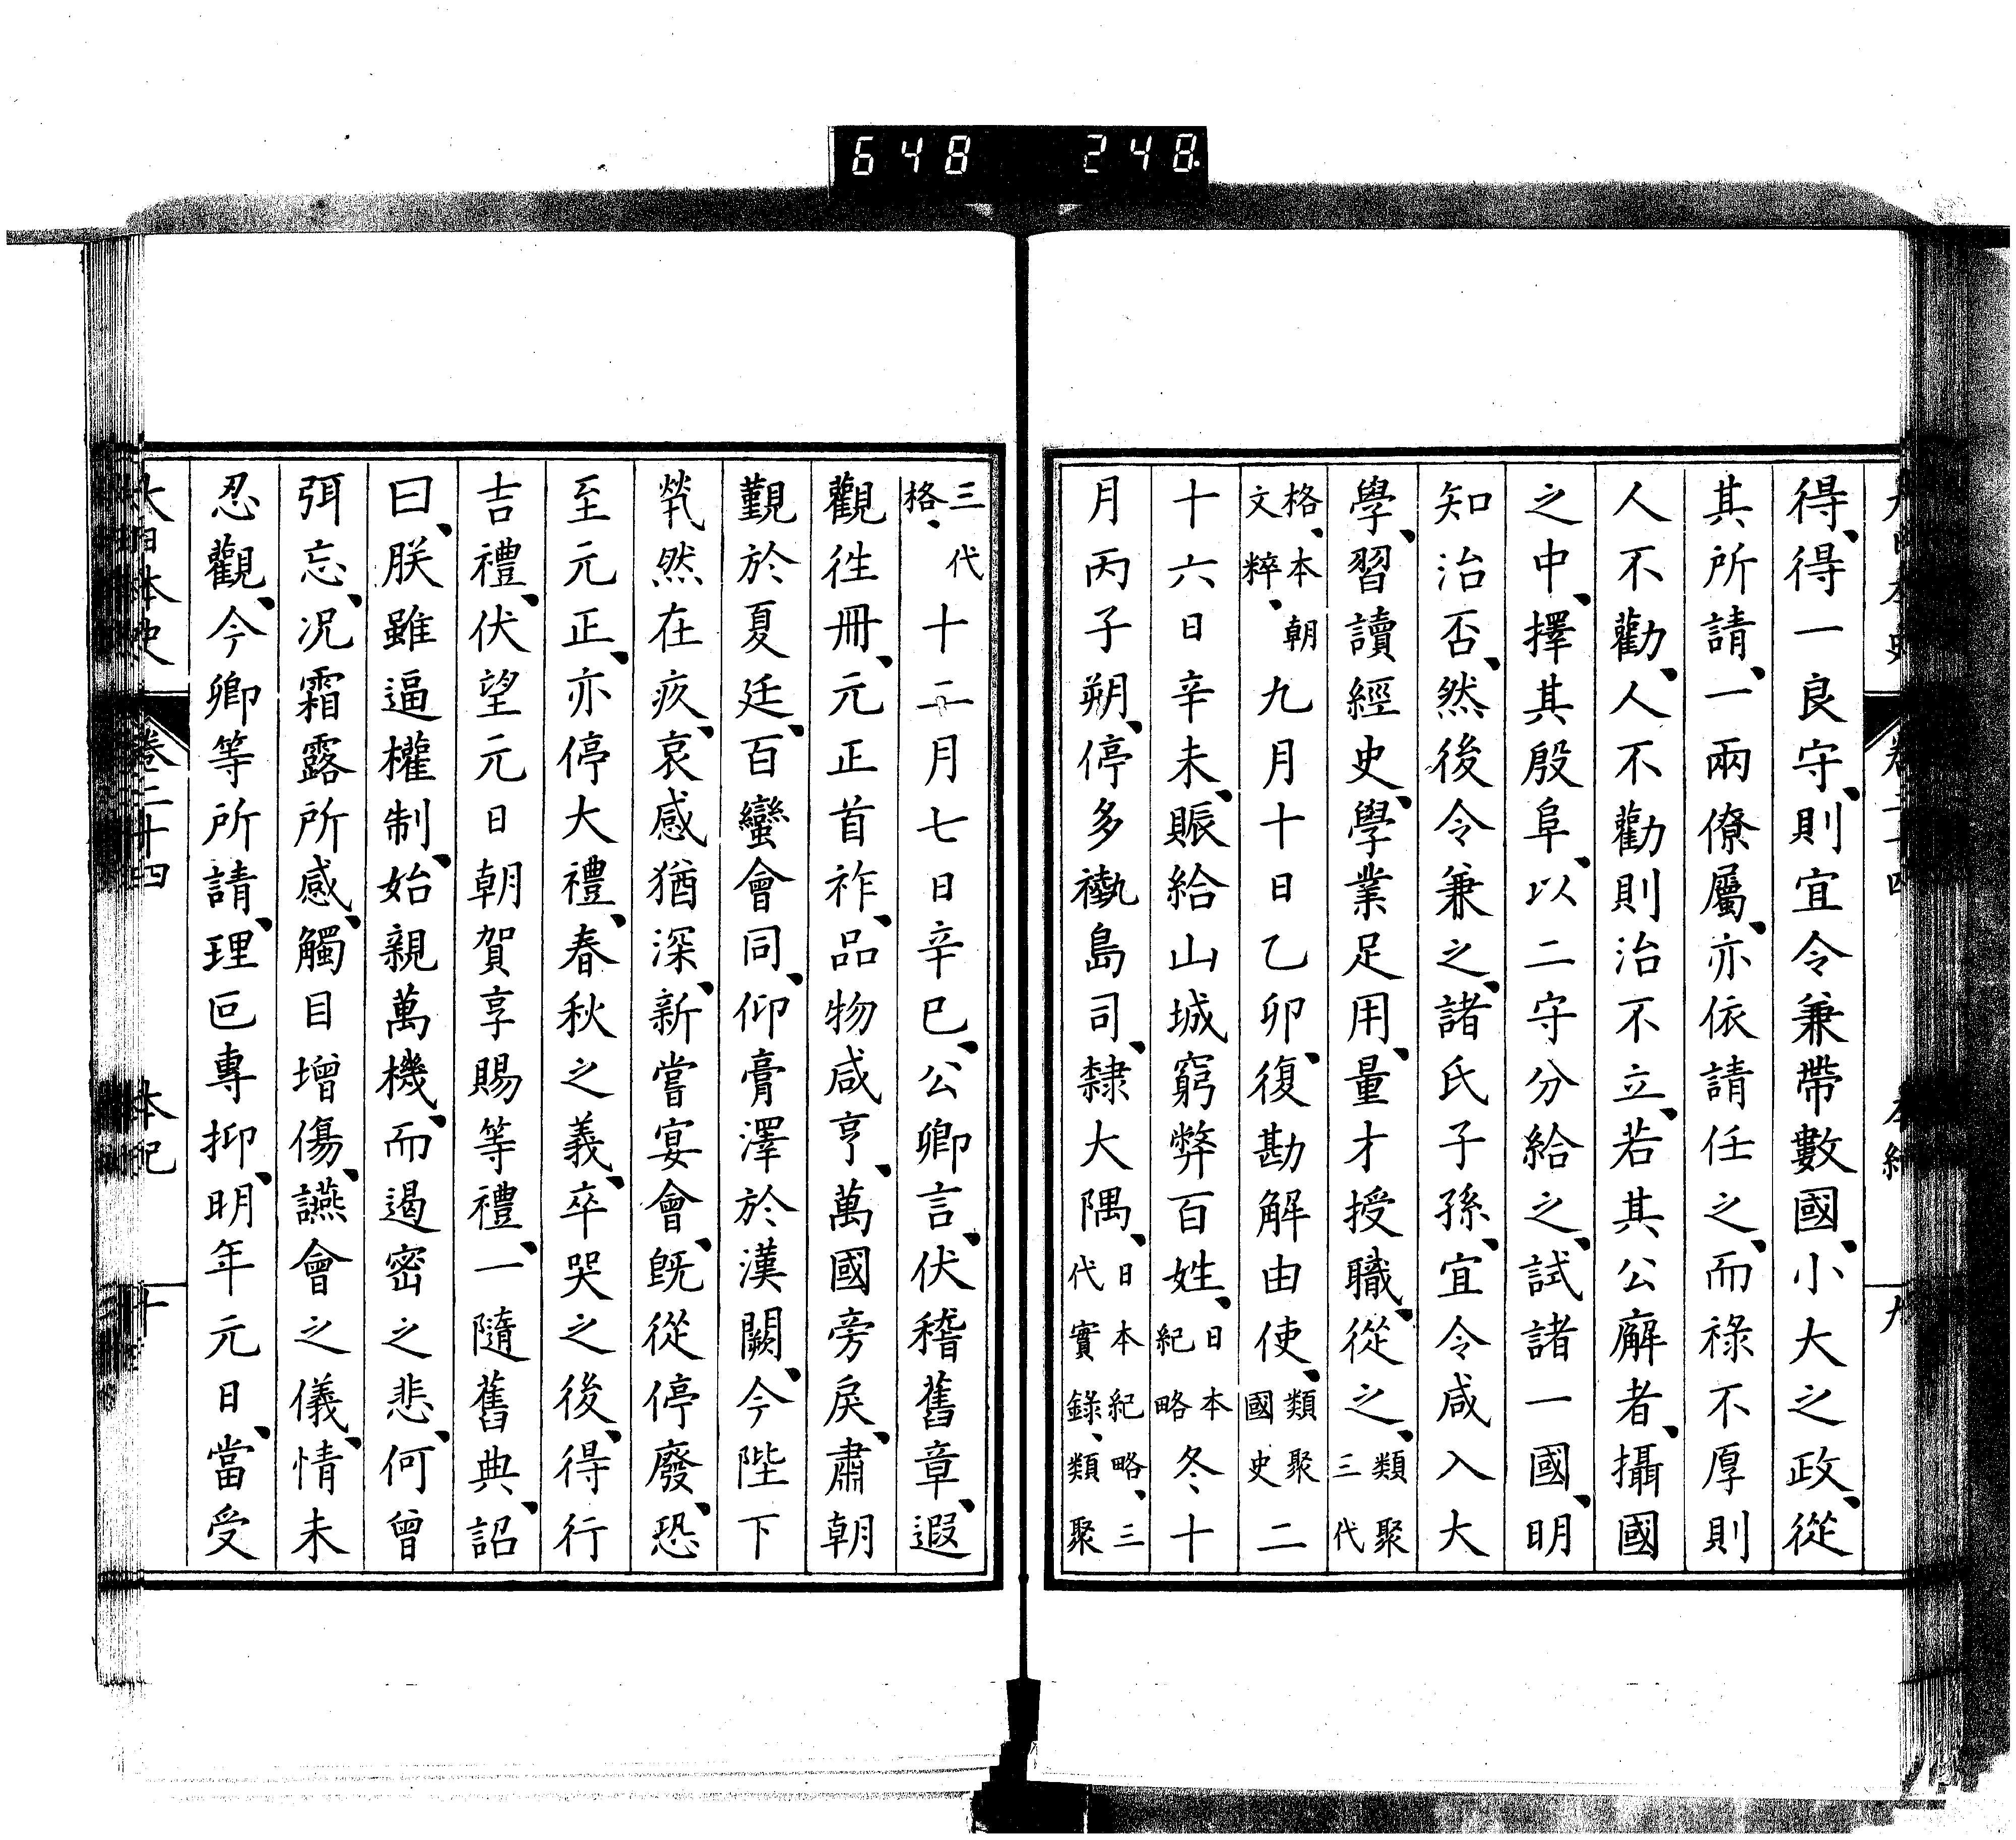 648 248
大日本史 卷二十四 本紀 九
得、得一良守、則宜令兼帶數國、小大之政、從
其所請、一兩僚屬、亦依請任之、而祿不厚則
人不勸、人不勸則治不立、若其公廨者、攝國
之中、擇其殷阜、以二守分給之、試諸一國、明
知治否、然後令兼之、諸氏子孫、宜令咸入大
學、習讀經史、學業足用、量才授職、從之、類聚三代
格、本朝文粹、九月十日乙卯、復勘解由使、類聚國史二
十六日辛未、賑給山城窮弊百姓、日本紀略冬十
月丙子朔、停多褹島司、隸大隅、日本紀略、三代實錄、類聚
三代格、十二月七日辛巳、公卿言、伏稽舊章、遐
觀徃冊、元正首祚、品物咸亨、萬國旁戾、肅朝
覲於夏廷、百蠻會同、仰膏澤於漢闕、今陛下
煢然在疚、哀感猶深、新嘗宴會、旣從停廢、恐
至元正、亦停大禮、春秋之義、卒哭之後、得行
吉禮、伏望元日朝賀享賜等禮、一隨舊典、詔
曰、朕雖逼權制、始親萬機、而遏密之悲、何曾
弭忘、况霜露所感、觸目增傷、讌會之儀、情未
忍觀、今卿等所請、理叵專抑、明年元日、當受
大日本史 卷二十四 本紀 十